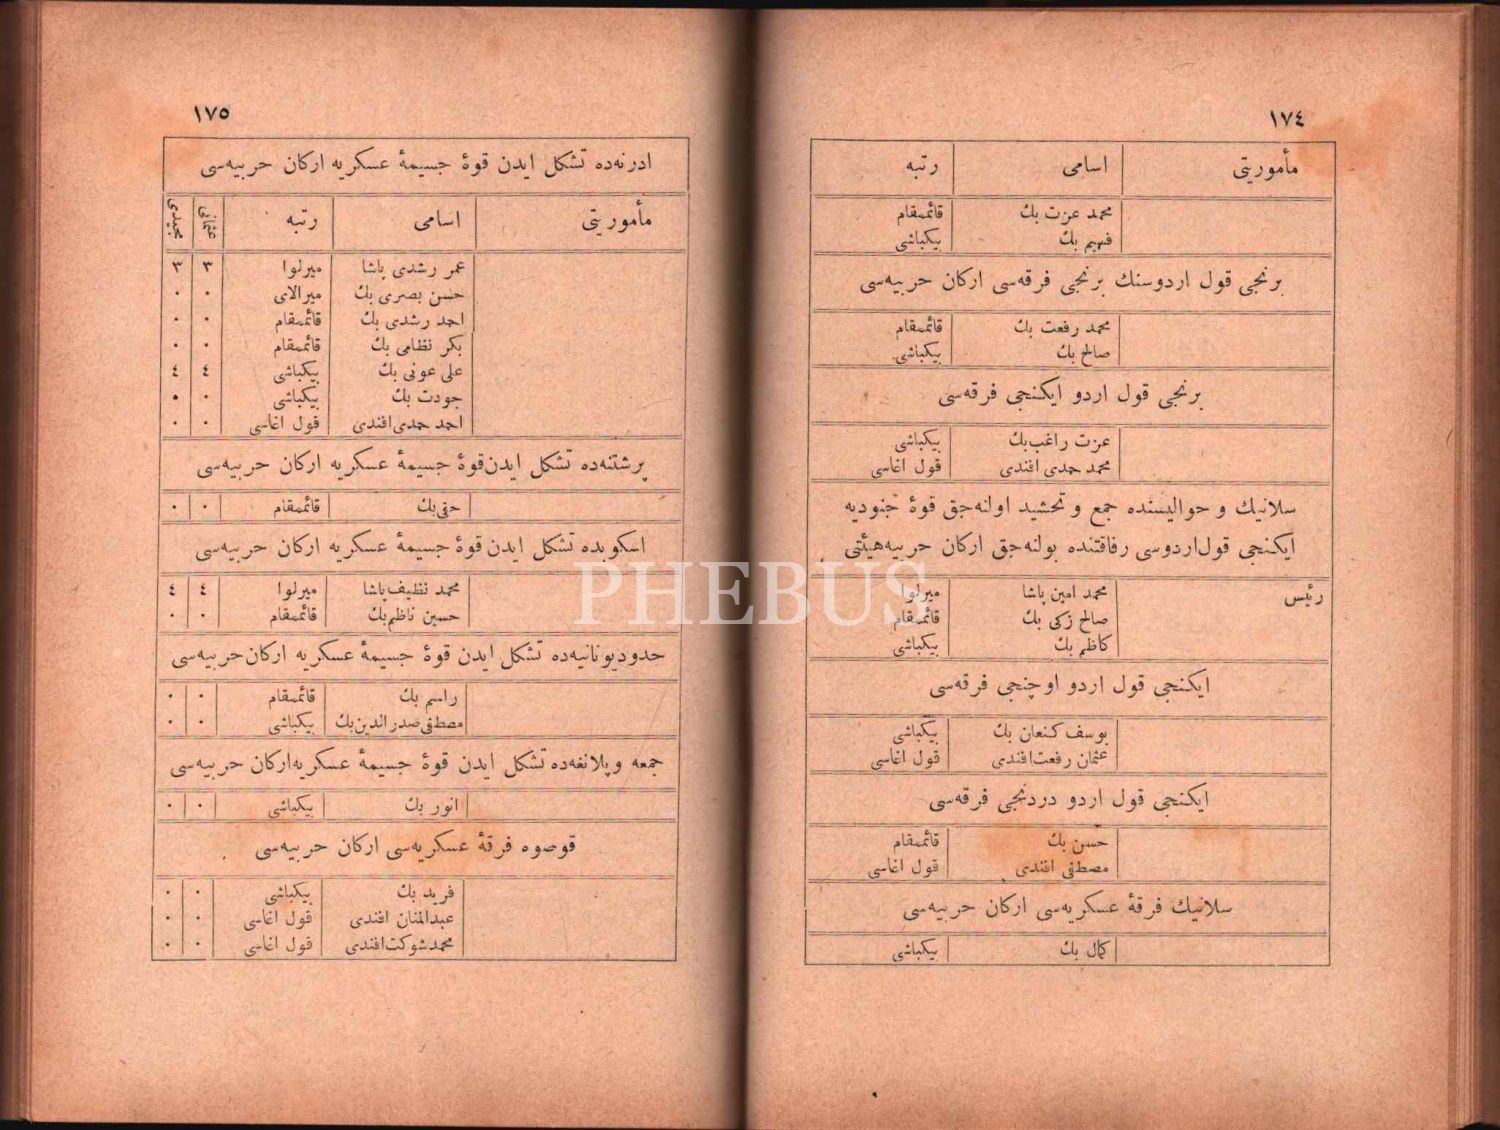 ١٧٤
مأموريتى اسامى رتبه
محمد عزت بك قائممقام
فهيم بك بيكباشى
برنجى قول اردوسنك برنجى فرقه‌سى اركان حربيه‌سى
محمد رفعت بك قائممقام
صالح بك بيكباشى
برنجى قول اردو ايكنجى فرقه‌سى
عزت راغب‌بك بيكباشى
محمد حمدى افندى قول اغاسى
سلانيك و حواليسنده جمع و تحشيد اولنه‌جق قوهٔ جنوديه
ايكنجى قول‌اردوسى رفاقتنده بولنه‌جق اركان حربيه‌هيئتى
رئيس محمد امين پاشا ميرلوا
صالح زكى بك قائممقام
كاظم بك بيكباشى
ايكنجى قول اردو اوچنجى فرقه‌سى
يوسف كنعان بك بيكباشى
عثمان رفعت‌افندى قول اغاسى
ايكنجى قول اردو دردنجى فرقه‌سى
حسن بك قائممقام
مصطفى افندى قول اغاسى
سلانيك فرقهٔ عسكريه‌سى اركان حربيه‌سى
كمال بك بيكباشى
١٧٥
ادرنه‌ده تشكل ايدن قوهٔ جسيمهٔ عسكريه اركان حربيه‌سى
مأموريتى اسامى رتبه عثمانى مجيدى
عمر رشدى پاشا ميرلوا ٣ ٣
حسن بصرى بك ميرالاى ٠ ٠
احمد رشدى بك قائممقام ٠ ٠
بكر نظامى بك قائممقام ٠ ٠
على عونى بك بيكباشى ٤ ٤
جودت بك بيكباشى ٠ ٥
احمد حمدى‌افندى قول اغاسى ٠ ٠
پرشتنه‌ده تشكل ايدن‌قوهٔ جسيمهٔ عسكريه اركان حربيه‌سى
حقى‌بك قائممقام ٠ ٠
اسكوبده تشكل ايدن قوهٔ جسيمهٔ عسكريه اركان حربيه‌سى
محمد نظيف‌پاشا ميرلوا ٤ ٤
حسين ناظم‌بك قائممقام ٠ ٠
حدوديونانيه‌ده تشكل ايدن قوهٔ جسيمهٔ عسكريه اركان‌حربيه‌سى
راسم بك قائممقام ٠ ٠
مصطفى‌صدرالدين‌بك بيكباشى ٠ ٠
جمعه وپلانغه‌ده تشكل ايدن قوهٔ جسيمهٔ عسكريه‌اركان حربيه‌سى
انور بك بيكباشى ٠ ٠
قوصوه فرقهٔ عسكريه‌سى اركان حربيه‌سى
فريد بك بيكباشى ٠ ٠
عبدالمنان افندى قول اغاسى ٠ ٠
محمدشوكت‌افندى قول اغاسى ٠ ٠
PHEBUS